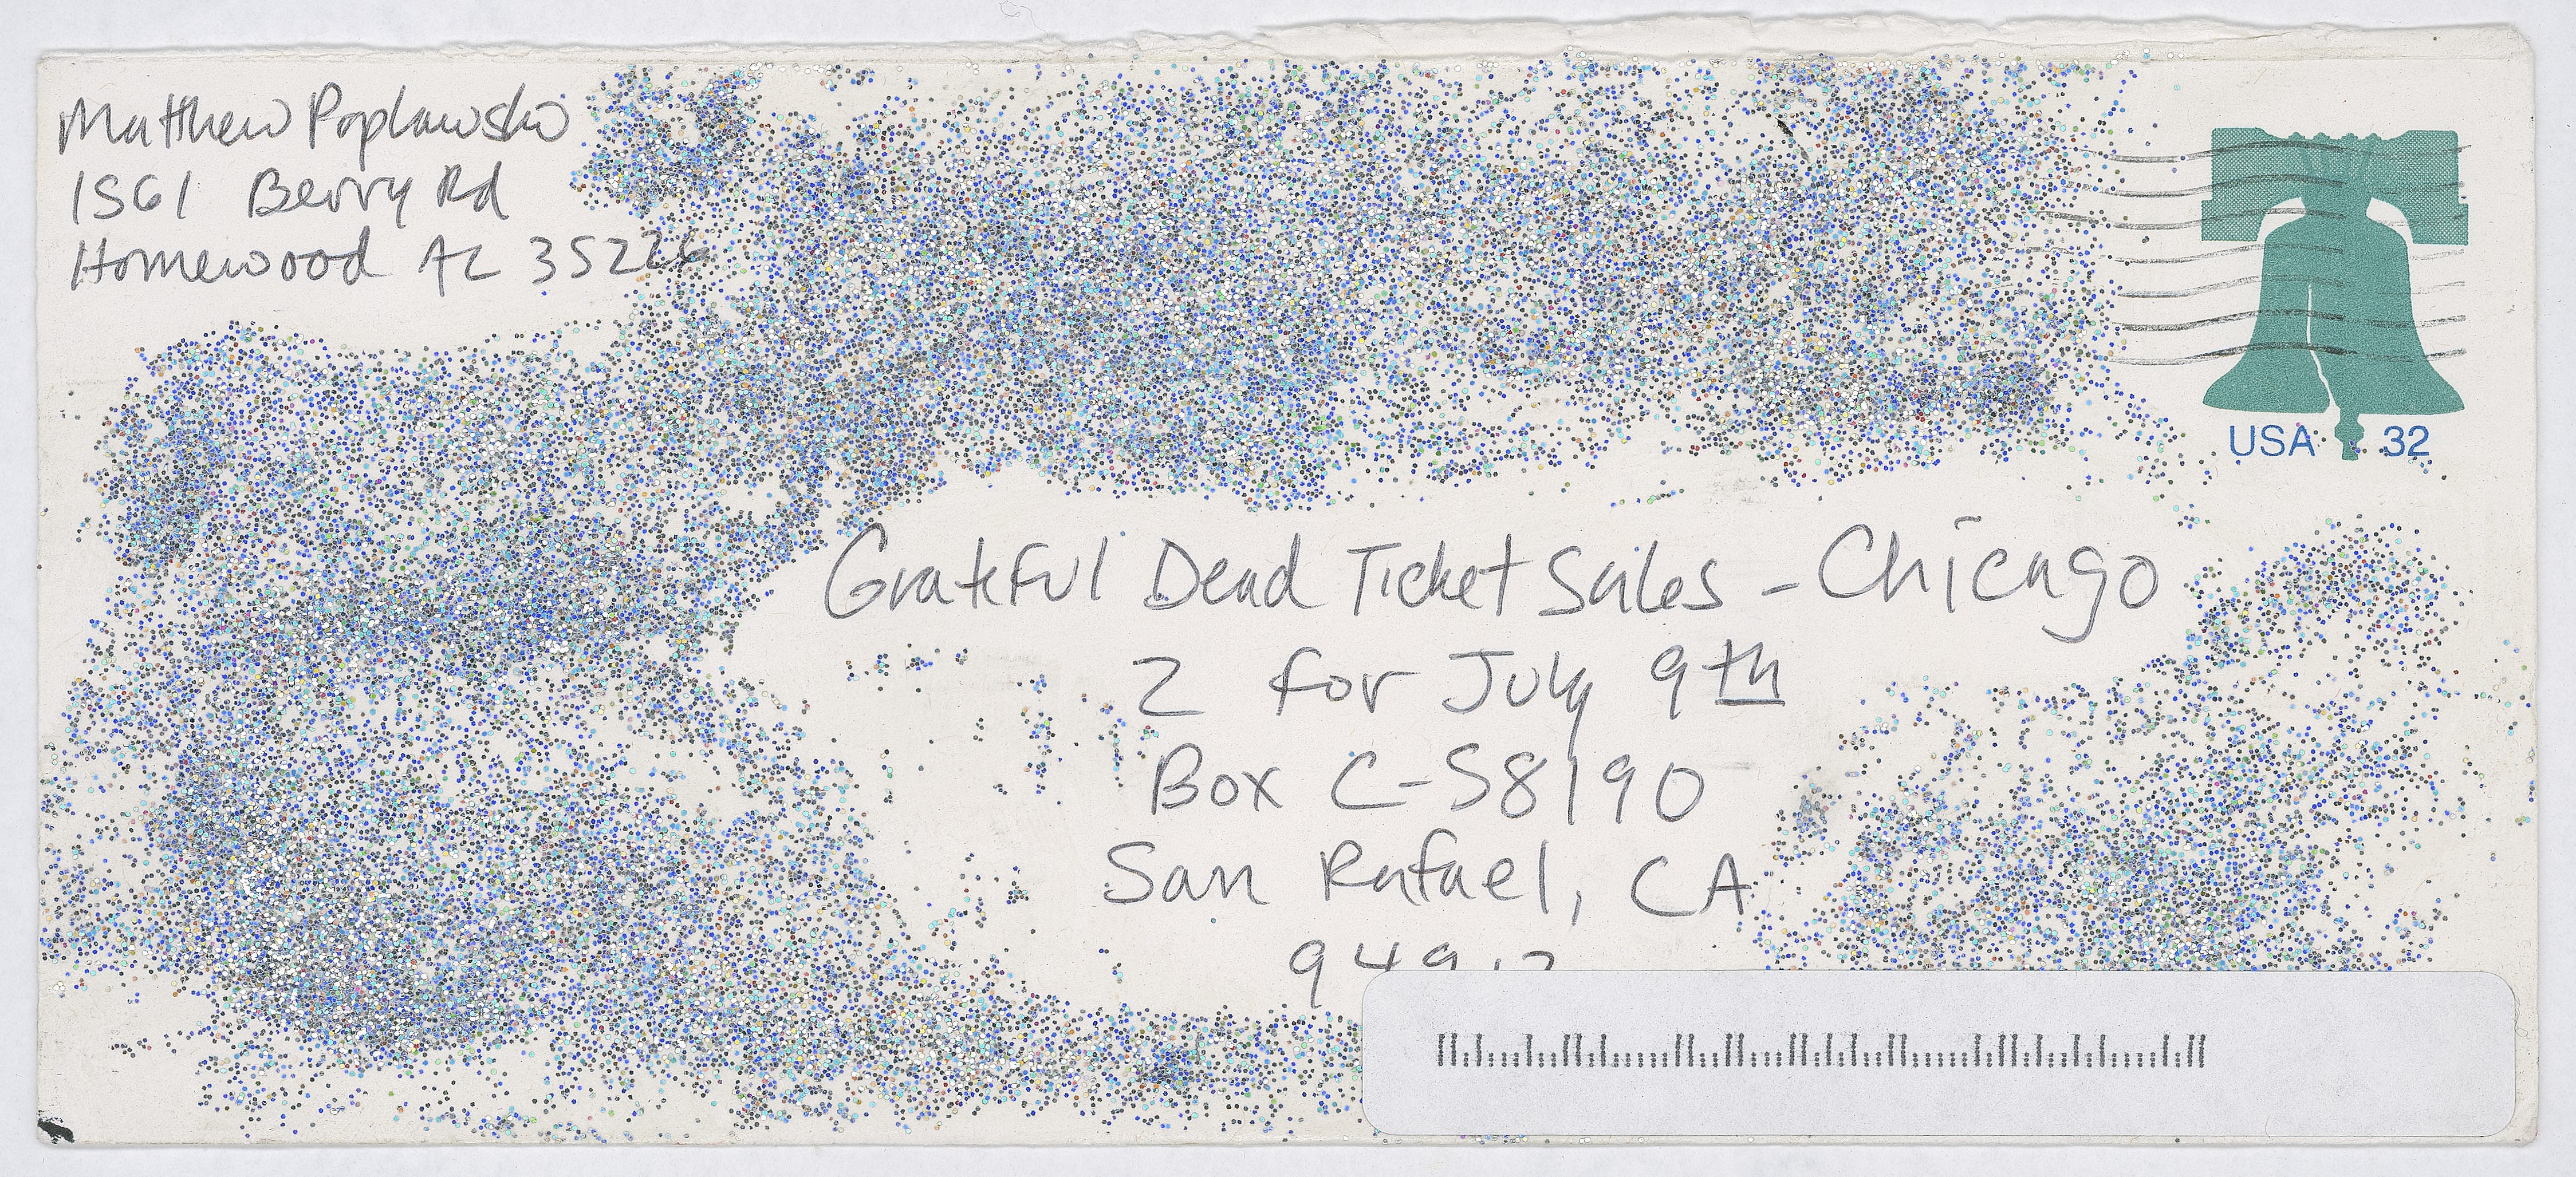 Matthew Poplawski
1561 Berry Rd
Homewood AL 35226
USA 32
Grateful Dead Ticket Sales - Chicago
2 for July 9th
Box C-S8190
San Rafael, CA